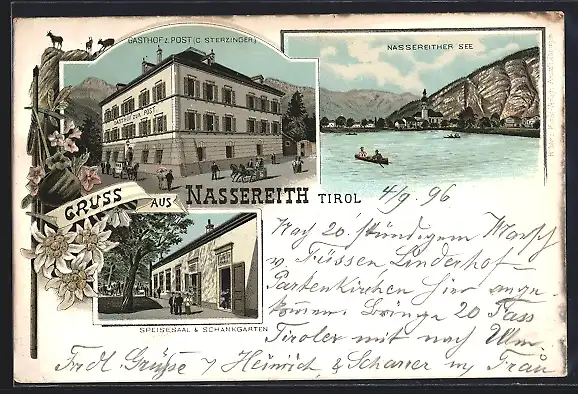 GASTHOF Z. POST (C. STERZINGER)
NASSEREITHER SEE
GASTHOF ZUR POST
GRUSS AUS NASSEREITH TIROL
SPEISESAAL & SCHANKGARTEN
4/9. 96
Nach 20 stündigem Marsch
v. Füssen Linderhof-
Partenkirchen hier ange-
kommen. Bringe 20 Fass
Tiroler mit nach Ulm.
Frdl. Grüsse v Heinrich, & Scharrer m Frau